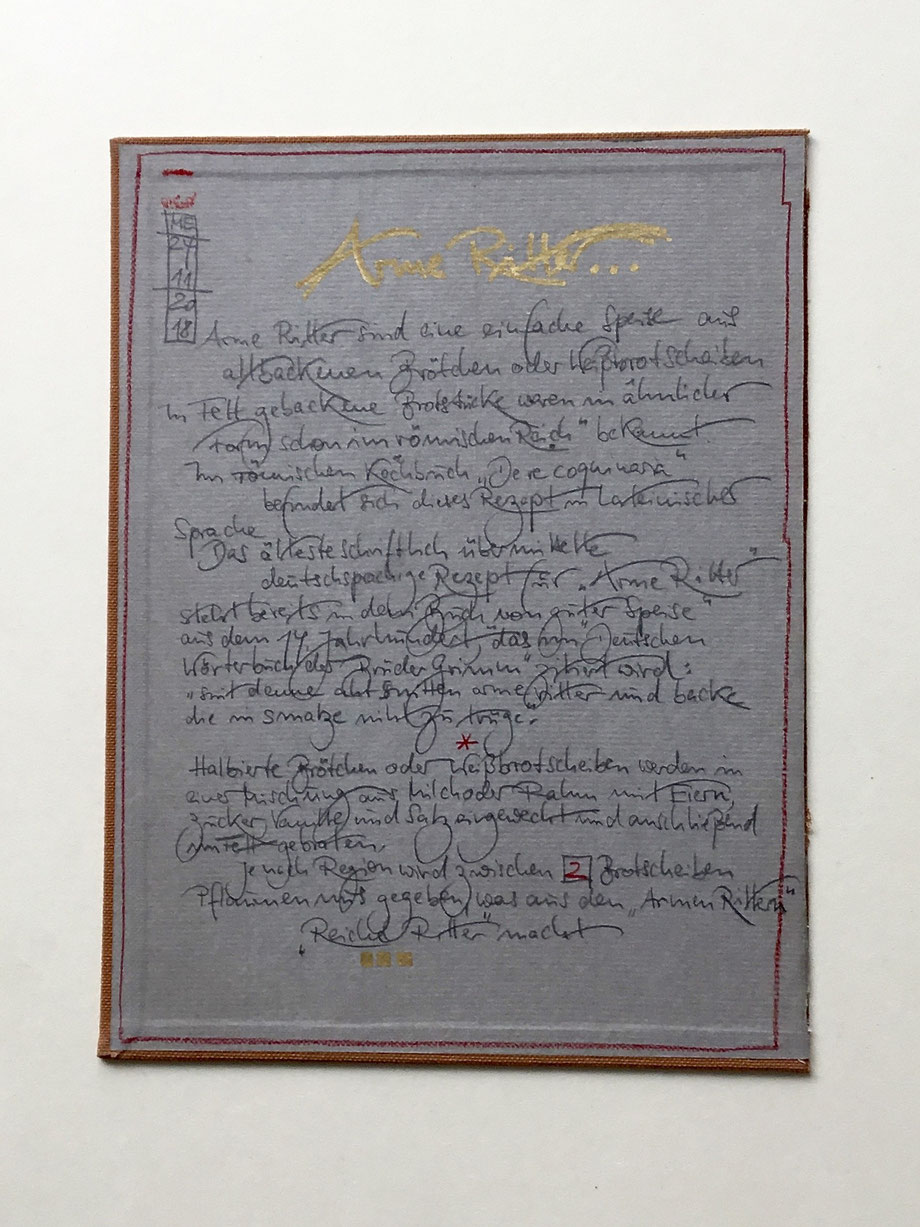 ME
24
11
20
18
Arme Ritter...
Arme Ritter sind eine einfache Speise aus
altbackenen Brötchen oder Weißbrotscheiben
In Fett gebackene Brotstücke waren in ähnlicher
Form schon im römischen Reich" bekannt.
Im römischen Kochbuch „De re coquinaria"
befindet sich dieses Rezept in Lateinischer
Sprache
Das älteste schriftlich übermittelte
deutschsprachige Rezept für „Arme Ritter"
steht bereits in dem Buch von guter Speise"
aus dem 14 Jahrhundert, das im "Deutschen
Wörterbuch der Brüder Grimm" zitiert wird:
"snit denne aht snitten arme Ritter und backe
die in smalze niht zu truge."
*
Halbierte Brötchen oder Weißbrotscheiben werden in
einer Mischung aus Milch oder Rahm mit Eiern,
Zucker, Vanille und Salz eingeweicht und anschließend
in Fett gebraten.
Je nach Region wird zwischen 2 Brotscheiben
Pflaumenmus gegeben, was aus den „Armen Rittern"
„Reiche Ritter" macht